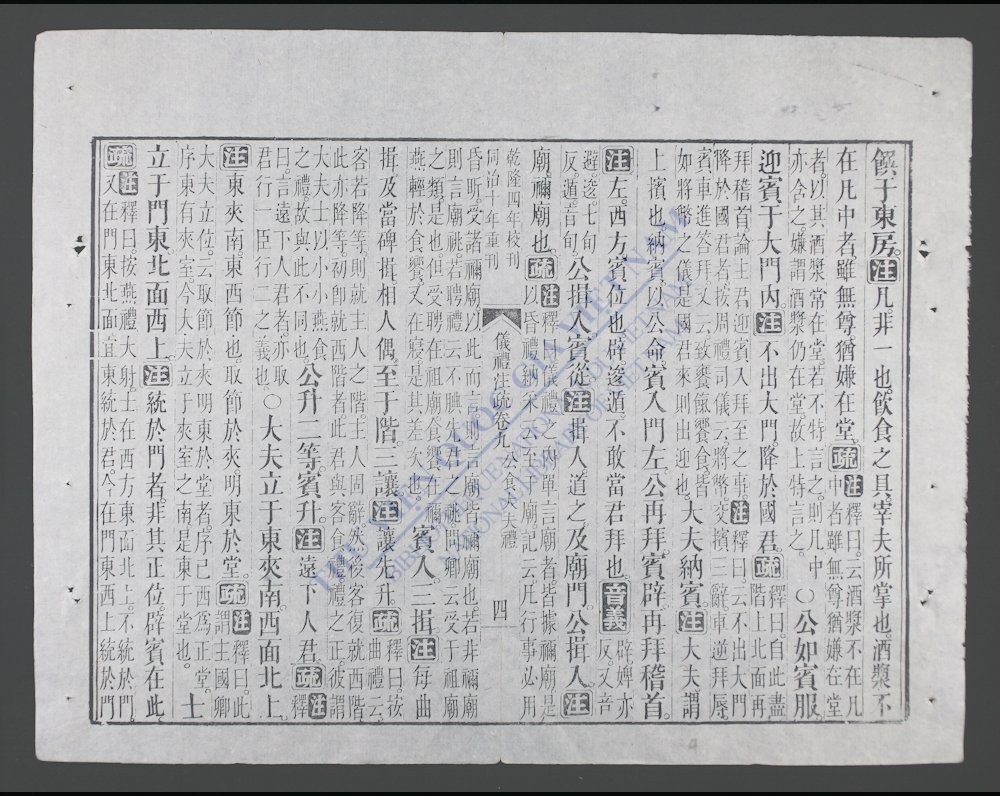 饌于東房。注凡。非一也。飲食之具。宰夫所掌也。酒漿不
在凡中者。雖無尊。猶嫌在堂。疏注釋曰。云酒漿不在凡
中者雖無尊猶嫌在堂
者。以其酒漿常在堂。若不特言之。則凡中
亦含之。嫌謂酒漿仍在堂。故上特言之。○公如賓服
迎賓于大門內。注不出大門。降於國君。疏釋曰自此盡
階上北面再
拜稽首。論主君迎賓入拜至之事。注釋曰云不出大門
降於國君者。按周禮司儀云。將幣。交擯三辭。車逆拜辱。
賓車進答拜。又云致饔餼饗食。皆
如將幣之儀。是國君來則出迎也。大夫納賓。注大夫謂
上擯也。納賓。以公命。賓入門左。公再拜。賓辟。再拜稽首。
注左。西方。賓位也。辟。逡遁。不敢當君拜也。音義辟婢亦
反。又音
避逡。七旬
反。遁。音旬。公揖入。賓從。注揖入。道之。及廟門。公揖入。注
廟。禰廟也。疏注釋儀禮之內單言廟者皆據禰廟。是
以昏禮納采云至于廟。記云凡行事必用
乾隆四年校刊
同治十年重刊
儀禮注疏卷九 公食大夫禮
四
昏昕。受諸禰廟。以此而言。則言廟皆禰廟也。若非禰廟
則言廟祧。若聘禮云不腆先君之祧。問卿云受于祖廟
之類是也。但受聘在祖廟。食饗在禰。
燕輕於食饗。又在寢。是其差次也。賓入。三揖。注每曲
揖及當碑揖。相人偶。至于階。三讓。注讓先升。疏釋曰按
曲禮云
客若降等。則就主人之階。主人固辭。然後客復就西階
此亦降等。初即就西階者。此君與客食禮禮之正。彼謂
大夫士以小小燕食
之禮。故與此不同也。公升二等。賓升。注遠下人君。疏注釋
曰。言遠下人君者。亦取
君行一臣行二之義也○大夫立于東夾南。西面北上。
注東夾南。東西節也。取節於夾。明東於堂。疏注釋曰。此
謂主國卿
大夫立位。云取節於夾明東於堂者。序已西為正堂。
序東有夾室。今大夫立于夾室之南。是東于堂也。士
立于門東。北面西上。注統於門者。非其正位。辟賓在此。
疏注釋曰按燕禮大射。士在西方東面北上。不統於門。
又在門東北面。宜東統於君。今在門東西上統於門
THƯ VIỆN QUỐC GIA VIỆT NAM
BIBLIOTHEQUE NATIONALE DU VIETNAM
NATIONAL LIBRARY OF VIETNAM